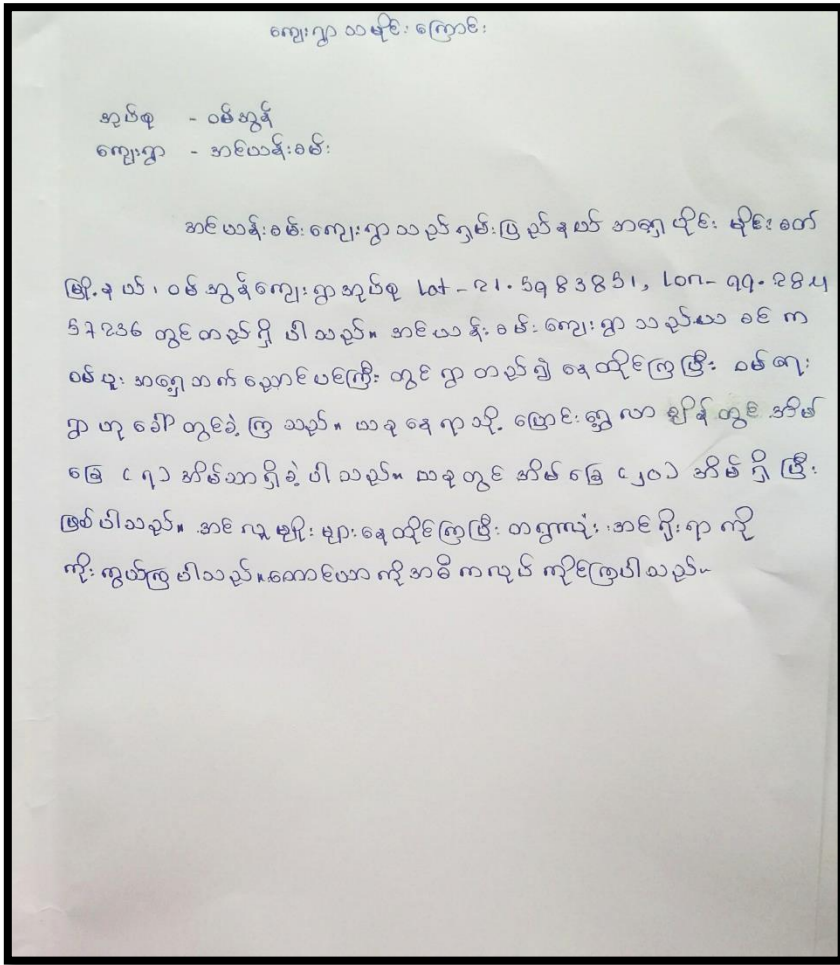 ကျေးရွာ သမိုင်း ကြောင်း
အုပ်စု - ဝမ်အွန်
ကျေးရွာ - အင်ယန်းစမ်း
အင်ယန်းစမ်းကျေးရွာသည် ရှမ်းပြည်နယ် အရှေ့ပိုင်း မိုင်းခတ်
မြို့နယ်၊ ဝမ်အွန်ကျေးရွာအုပ်စု Lat - 21.5983851, Lon - 99.284
57236 တွင်တည်ရှိ ပါသည်။ အင်ယန်းစမ်းကျေးရွာသည်ယခင်က
ဝမ်ပူး အရှေ့ဘက် ညောင်ပင်ကြီး တွင်ရွာတည်၍ နေထိုင်ကြပြီး ဝမ်
ရွာ ဟု ခေါ်တွင်ခဲ့ကြသည်။ ယခုနေရာသို့ ပြောင်းရွှေ့လာ ချိန်တွင် အိမ်
ခြေ (၇) အိမ်သာရှိခဲ့ပါသည်။ ယခုတွင် အိမ်ခြေ (၂၀) အိမ်ရှိ ပြီး
ဖြစ်ပါသည်။ အင် လူမျိုး များနေထိုင်ကြပြီး တရွာလုံး အင်ရိုးရာ ကို
ကိုးကွယ်ကြပါသည်။ တောင်ယာကိုအဓိကလုပ် ကိုင်ကြပါသည်။